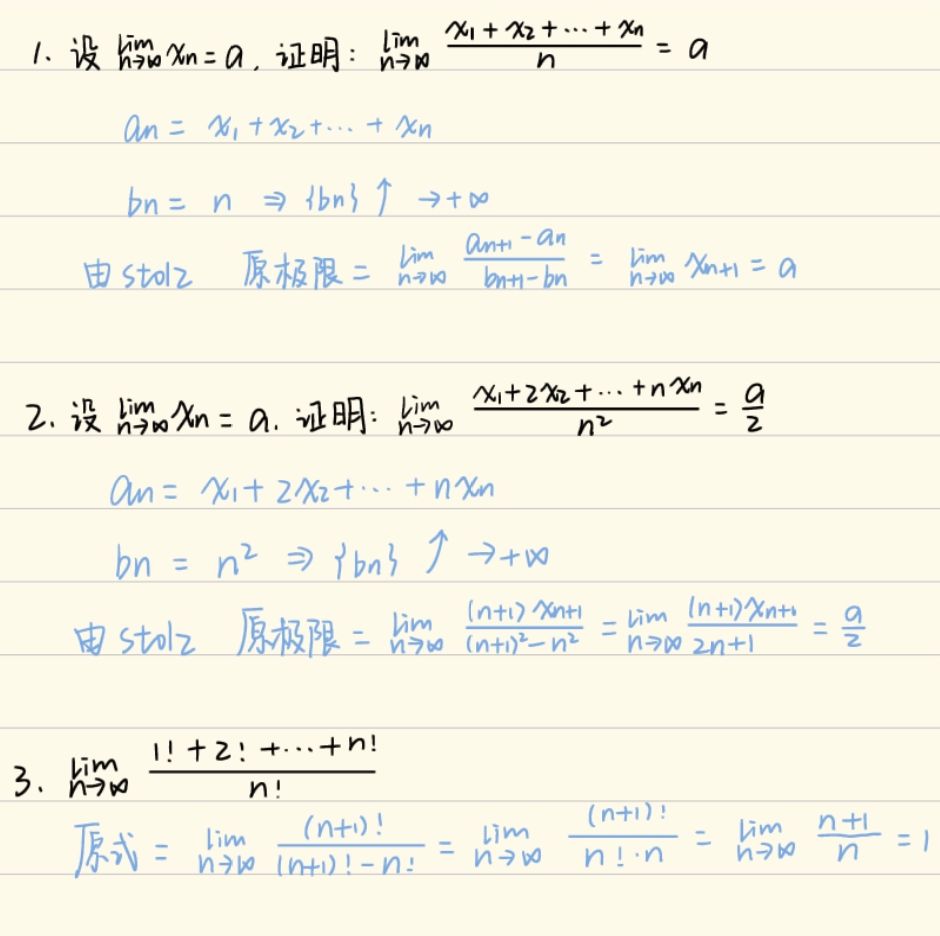 1. 设 lim_{n→∞} xn = a, 证明: lim_{n→∞} (x1 + x2 + ··· + xn)/n = a
an = x1 + x2 + ··· + xn
bn = n ⇒ {bn} ↑ → +∞
由 stolz 原极限 = lim_{n→∞} (an+1 - an)/(bn+1 - bn) = lim_{n→∞} xn+1 = a
2. 设 lim_{n→∞} xn = a. 证明: lim_{n→∞} (x1 + 2x2 + ··· + nxn)/n² = a/2
an = x1 + 2x2 + ··· + nxn
bn = n² ⇒ {bn} ↑ → +∞
由 stolz 原极限 = lim_{n→∞} (n+1)xn+1/((n+1)² - n²) = lim_{n→∞} (n+1)xn+1/(2n+1) = a/2
3. lim_{n→∞} (1! + 2! + ··· + n!)/n!
原式 = lim_{n→∞} (n+1)!/((n+1)! - n!) = lim_{n→∞} (n+1)!/(n!·n) = lim_{n→∞} (n+1)/n = 1